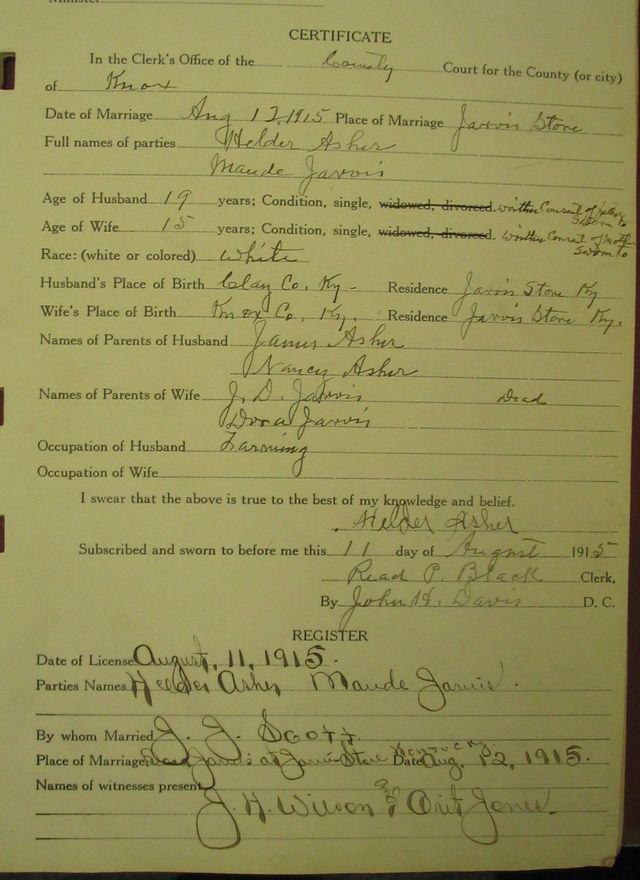 Minister
CERTIFICATE
In the Clerk's Office of the County Court for the County (or city)
of Knox
Date of Marriage Aug 12, 1915 Place of Marriage Jarvis Store
Full names of parties Helder Asher
Maude Jarvis
Age of Husband 19 years; Condition, single, widowed, divorced. written Consent of father
Sworn to
Age of Wife 15 years; Condition, single, widowed, divorced. written Consent of Mother
Sworn to
Race: (white or colored) White
Husband's Place of Birth Clay Co. Ky - Residence Jarvis Store Ky
Wife's Place of Birth Knox Co, Ky. Residence Jarvis Store Ky.
Names of Parents of Husband James Asher
Nancy Asher
Names of Parents of Wife J. D. Jarvis Dead
Dora Jarvis
Occupation of Husband Farming
Occupation of Wife
I swear that the above is true to the best of my knowledge and belief.
Helder Asher
Subscribed and sworn to before me this 11 day of August 1915
Read P. Black Clerk,
By John H. Davis D. C.
REGISTER
Date of License August, 11, 1915.
Parties Names Helder Asher Maude Jarvis.
By whom Married J. J. Scott.
Place of Marriage Jarvis at Jarvis Store Kentucky Date Aug. 12, 1915.
Names of witnesses present
J. H. Wilson and Jones.